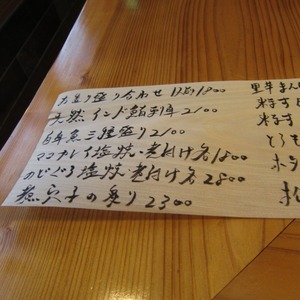 お造り盛り合わせ 1人前1800
天然インド鮪刺身 2100
白身魚三種盛り 2100
マコガレイ塩焼・煮付け各1500
のどぐろ塩焼・煮付け各2800
煮穴子の炙り 2300
黒牛まん
とろ
ホ